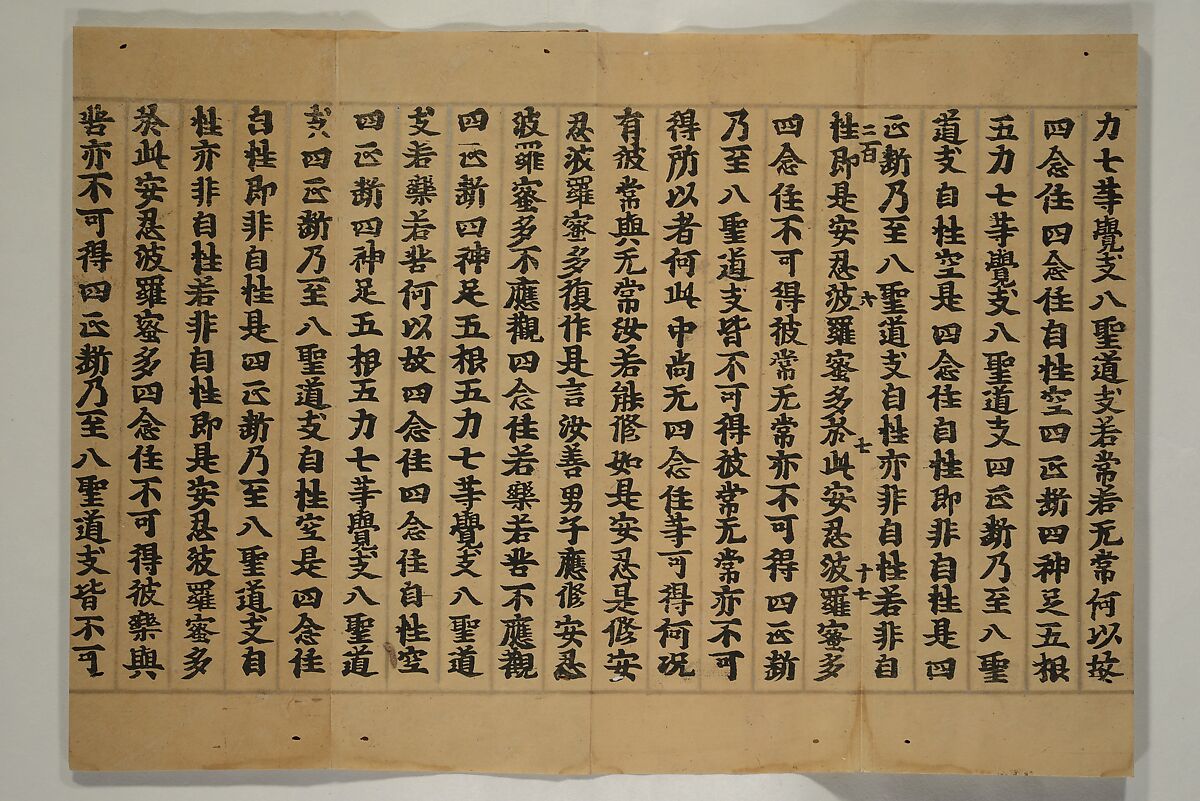 力七等覺支八聖道支若常若无常何以故
四念住四念住自性空四正斷四神足五根
五力七等覺支八聖道支四正斷乃至八聖
道支自性空是四念住自性即非自性是四
正斷乃至八聖道支自性亦非自性若非自
二百 六 七 十七
性即是安忍波羅蜜多於此安忍波羅蜜多
四念住不可得彼常无常亦不可得四正斷
乃至八聖道支皆不可得彼常无常亦不可
得所以者何此中尚无四念住等可得何況
有彼常與无常汝若能修如是安忍是修安
忍波羅蜜多復作是言汝善男子應修安忍
波羅蜜多不應觀四念住若樂若苦不應觀
四正斷四神足五根五力七等覺支八聖道
支若樂若苦何以故四念住四念住自性空
四正斷四神足五根五力七等覺支八聖道
支四正斷乃至八聖道支自性空是四念住
自性即非自性是四正斷乃至八聖道支自
性亦非自性若非自性即是安忍波羅蜜多
於此安忍波羅蜜多四念住不可得彼樂與
苦亦不可得四正斷乃至八聖道支皆不可